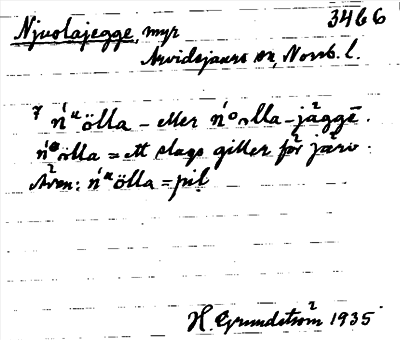 3466
Njuolajegge, myr
Arvidsjaurs sn, Norrb. l.
ń ᵘölla – eller ń ᵒolla – jäggē.
ń ᵘölla = ett slags giller för järv.
Även: ń ᵘölla = pil
H. Grundström 1935